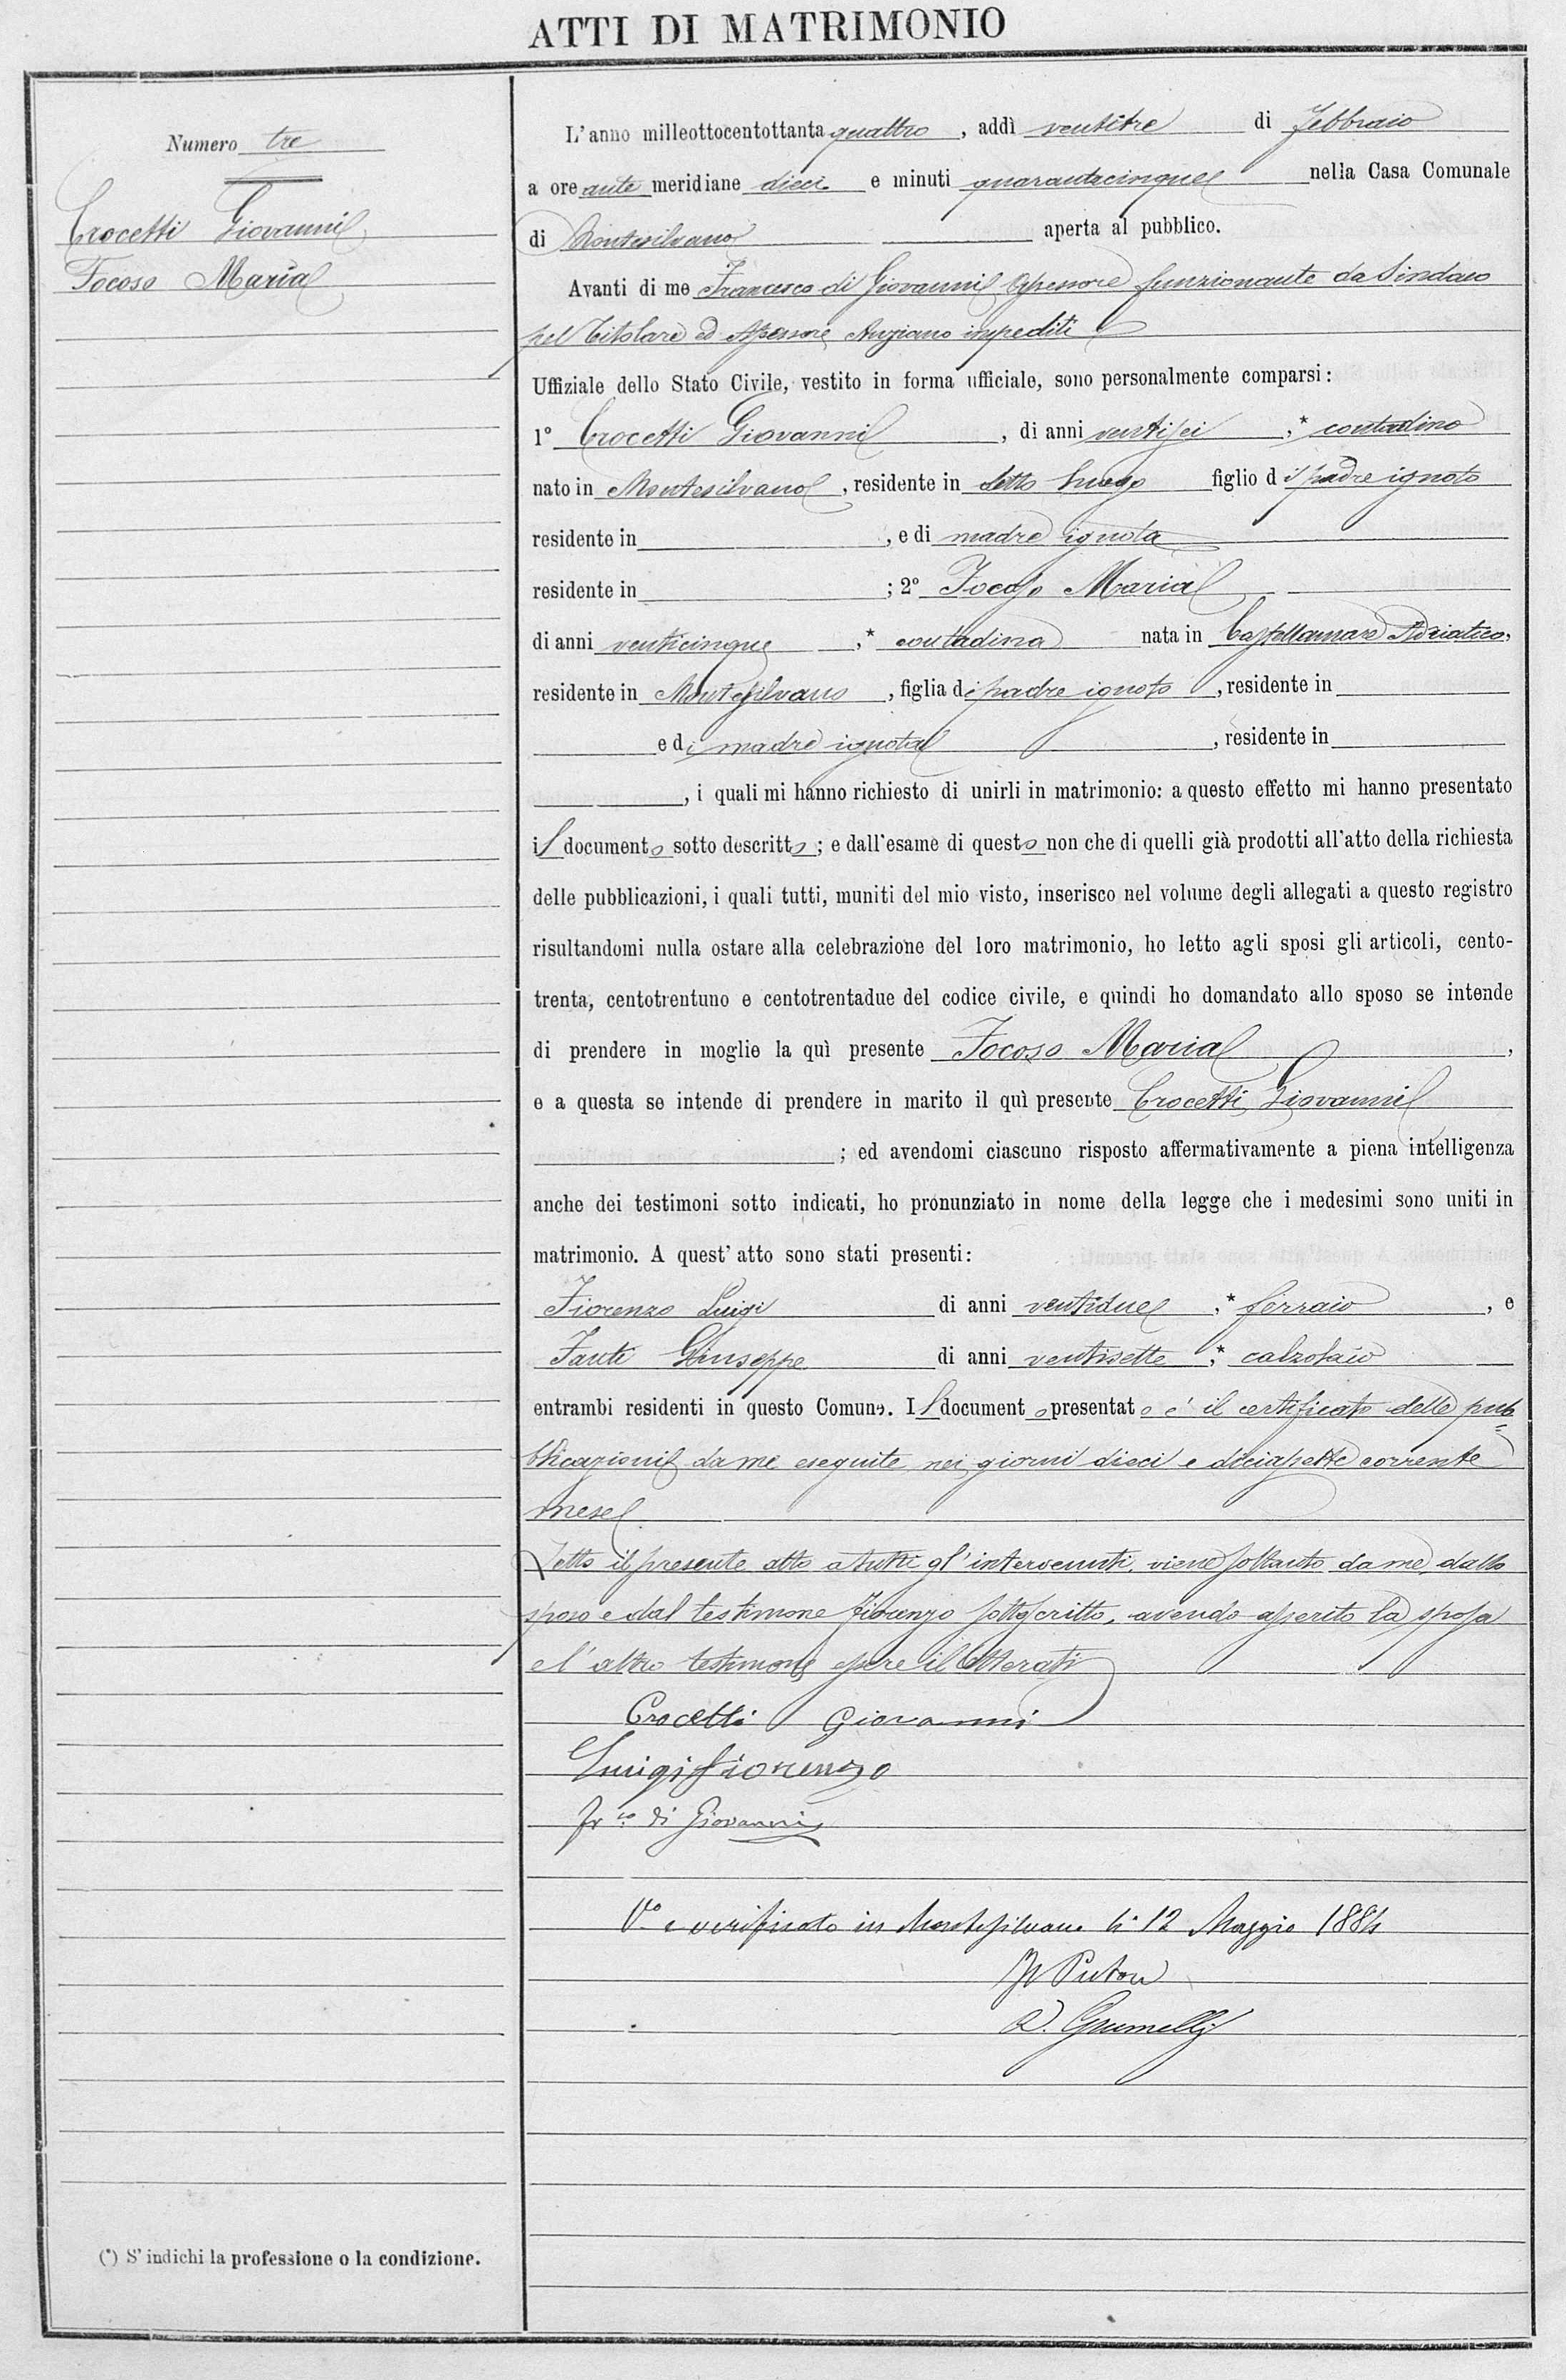 ATTI DI MATRIMONIO
Numero tre
Crocetti Giovanni
Focoso Maria
L'anno milleottocentottanta quattro, addì ventitre di Febbraio
a ore ante meridiane dieci e minuti quarantacinque nella Casa Comunale
di Montesilvano aperta al pubblico.
Avanti di me Francesco di Giovanni Assessore funzionante da Sindaco
pel Titolare ed Assessore Anziano impediti
Uffiziale dello Stato Civile, vestito in forma ufficiale, sono personalmente comparsi:
1° Crocetti Giovanni, di anni ventisei,* contadino
nato in Montesilvano, residente in detto luogo figlio di padre ignoto
residente in , e di madre ignota
residente in ; 2° Focoso Maria
di anni venticinque,* contadina nata in Castellamare Adriatico,
residente in Montesilvano, figlia di padre ignoto, residente in
e di madre ignota, residente in
, i quali mi hanno richiesto di unirli in matrimonio: a questo effetto mi hanno presentato
il documento sotto descritto; e dall'esame di questo non che di quelli già prodotti all'atto della richiesta
delle pubblicazioni, i quali tutti, muniti del mio visto, inserisco nel volume degli allegati a questo registro
risultandomi nulla ostare alla celebrazione del loro matrimonio, ho letto agli sposi gli articoli, cento-
trenta, centotrentuno e centotrentadue del codice civile, e quindi ho domandato allo sposo se intende
di prendere in moglie la quì presente Focoso Maria,
e a questa se intende di prendere in marito il quì presente Crocetti Giovanni
; ed avendomi ciascuno risposto affermativamente a piena intelligenza
anche dei testimoni sotto indicati, ho pronunziato in nome della legge che i medesimi sono uniti in
matrimonio. A quest'atto sono stati presenti:
Fiorenzo Luigi di anni ventidue,* ferraio, e
Fanti Giuseppe di anni ventisette,* calzolaio
entrambi residenti in questo Comune. Il documento presentato e' il certificato delle pub=
blicazioni da me eseguite nei giorni dieci e diciasette corrente
mese
Letto il presente atto a tutti gl'intervenuti, viene soltanto da me, dallo
sposo e dal testimone Fiorenzo sottoscritto, avendo asserito la sposa
e l'altro testimone essere illetterati
Crocetti Giovanni
Luigi Fiorenzo
Fr.co di Giovanni
V.° e verificato in Montesilvano li 12 Maggio 1884
Il Pretore
Grumelli
(*) S'indichi la professione o la condizione.